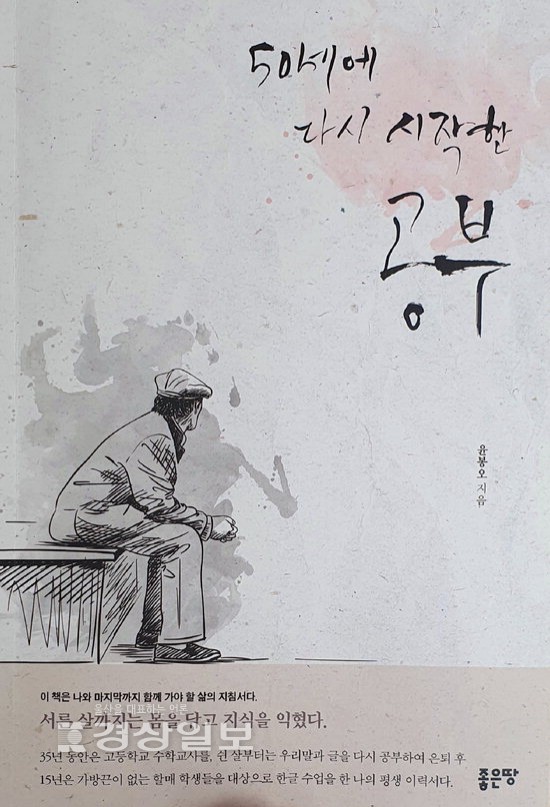 50세에
다시 시작한
공부
윤봉오 지음
이 책은 나와 마지막까지 함께 가야 할 삶의 지침서다.
울산을 대표하는 언론
서른 살까지는 몸을 닦고 지식을 익혔다.
경상일보
35년 동안은 고등학교 수학교사를, 쉰 살부터는 우리말과 글을 다시 공부하여 은퇴 후
15년은 가방끈이 없는 할매 학생들을 대상으로 한글 수업을 한 나의 평생 이력서다.
좋은땅